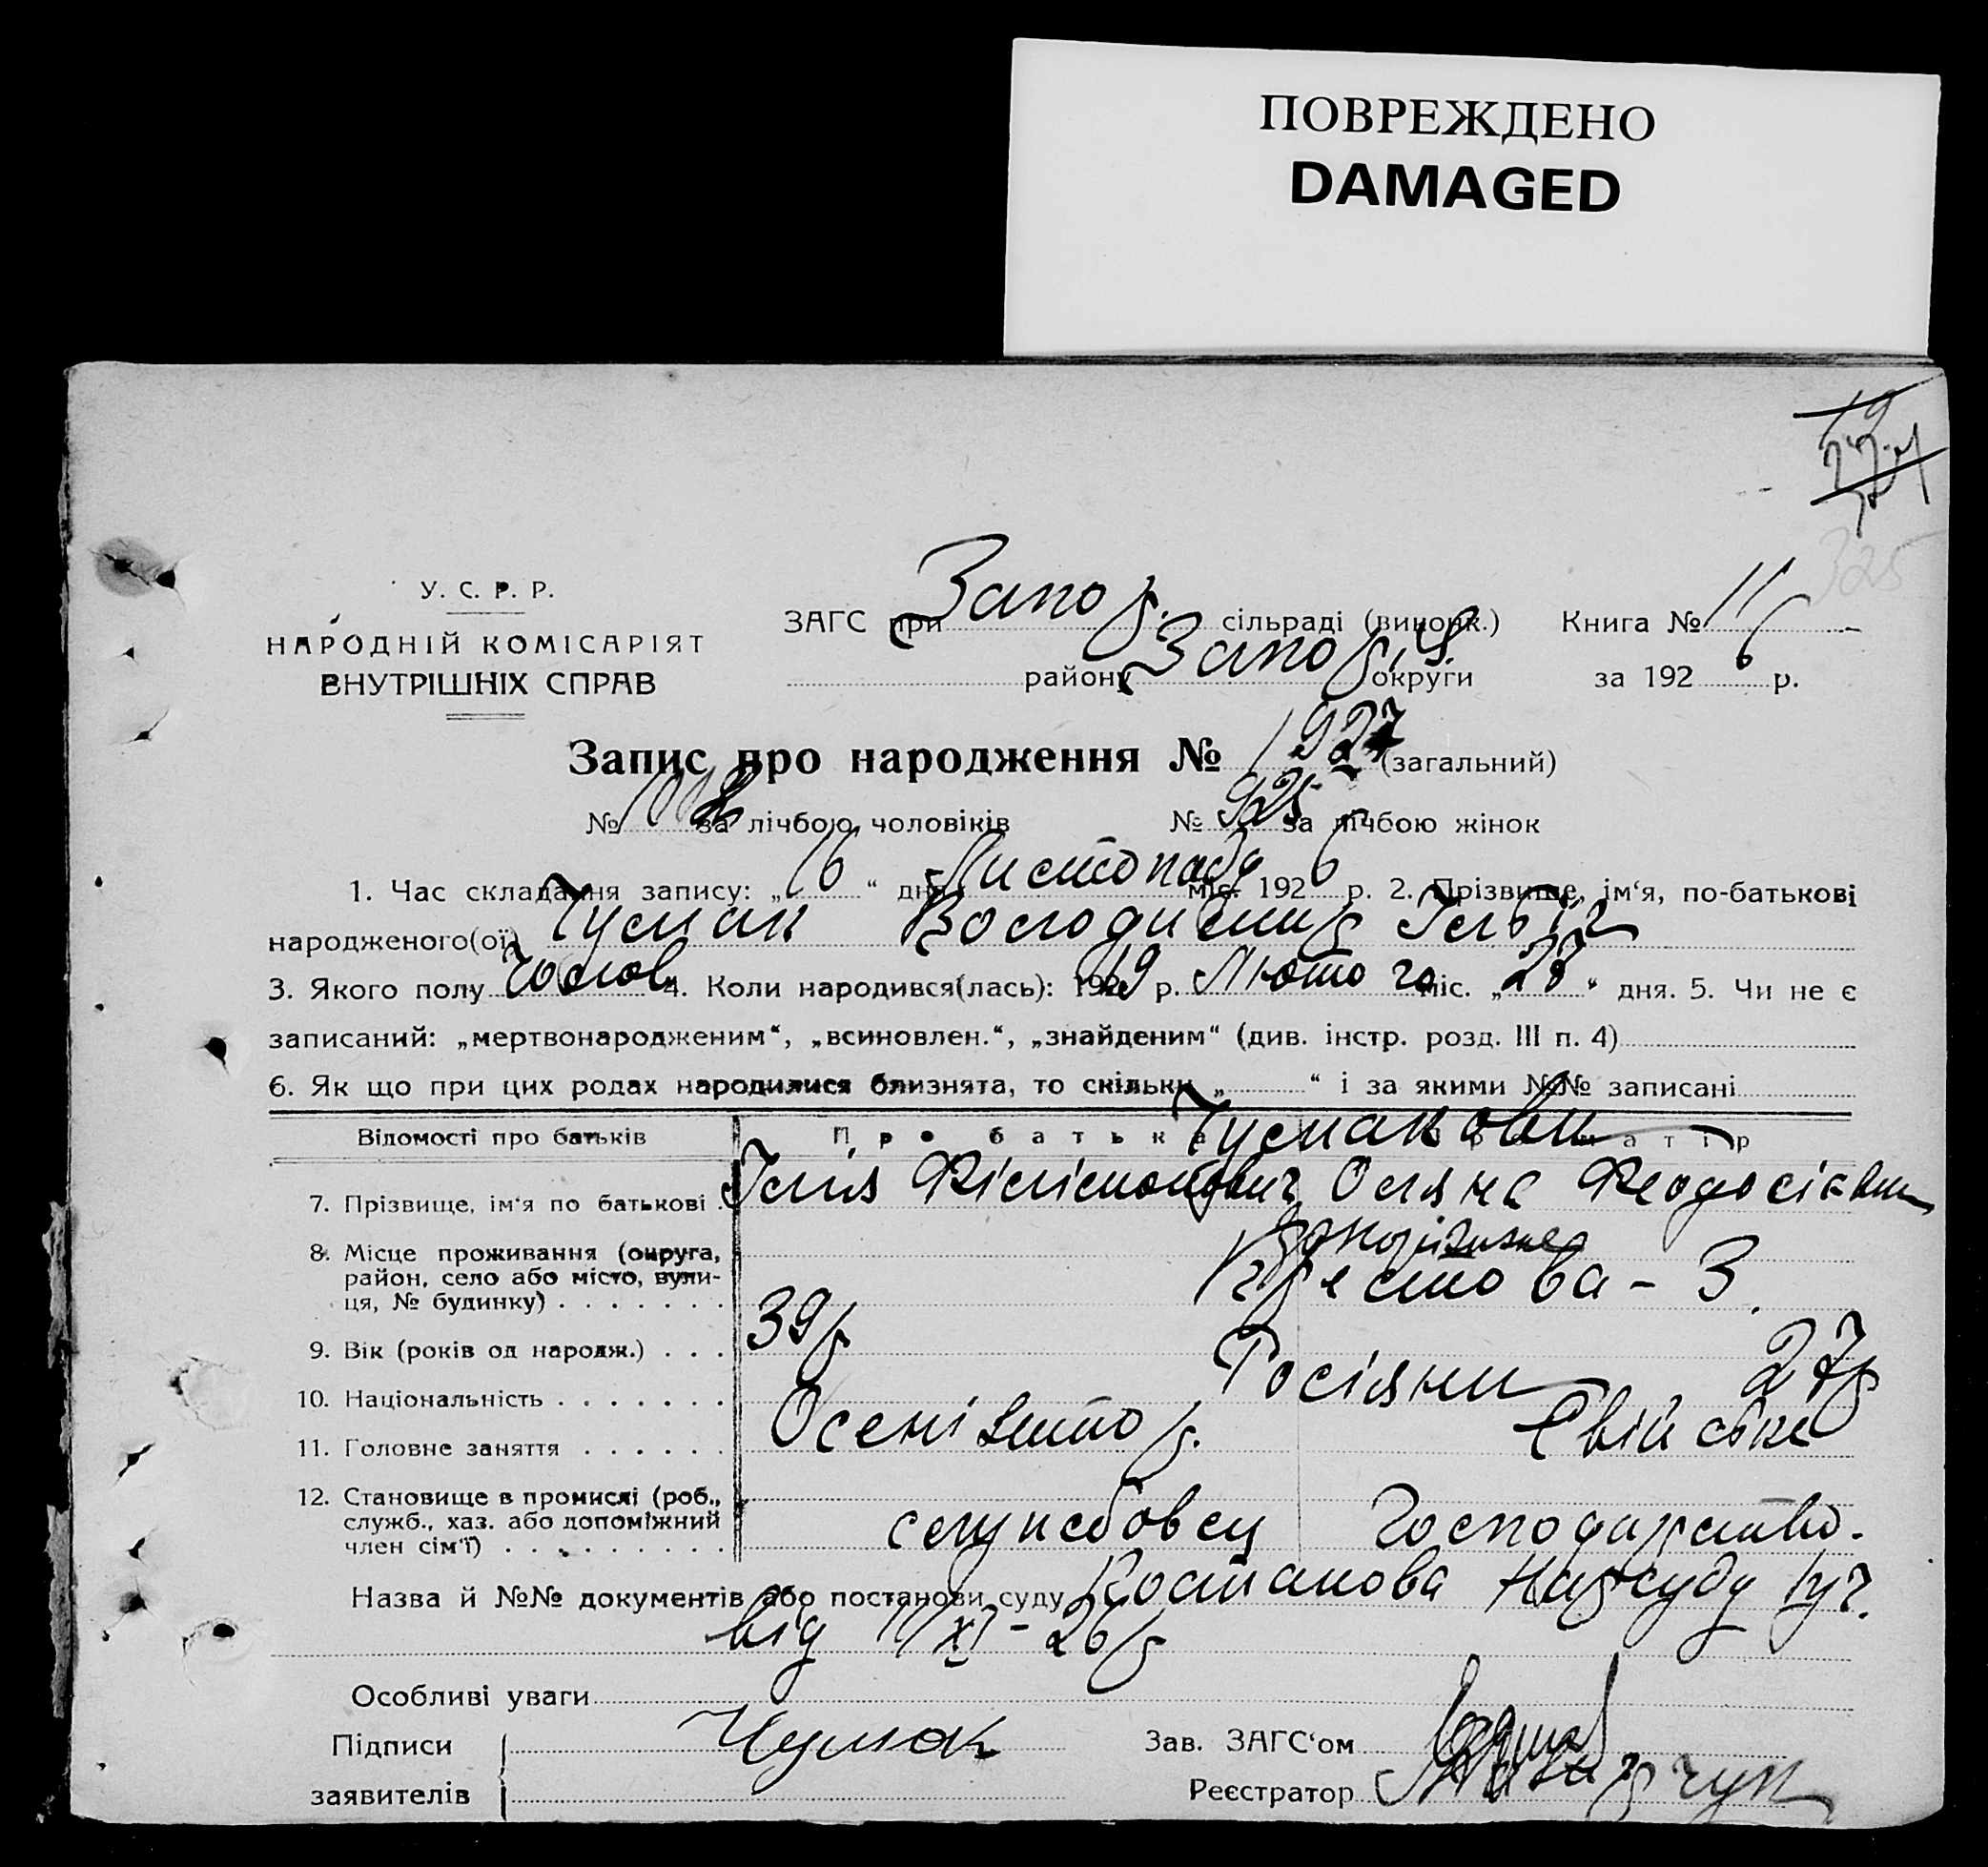 ПОВРЕЖДЕНО
DAMAGED
325
У. С. Р. Р.
НАРОДНІЙ КОМІСАРІЯТ
ВНУТРІШНІХ СПРАВ
ЗАГС при Запор. сільраді (виконк.) Книга № 11
району Запор. округи за 1926 р.
Запис про народження № 1927 (загальний)
№ 1002 за лічбою чоловіків № 925 за лічбою жінок
1. Час складання запису: „16“ дня Листопада міс. 1926 р. 2. Прізвище, ім‘я, по-батькові
народженого(ої) Чумак Володимир Ілліч
3. Якого полу Чолов. 4. Коли народився(лась): 1919 р. Лютого міс. „28“ дня. 5. Чи не є
записаний: „мертвонародженим“, „всиновлен.“, „знайденим“ (див. інстр. розд. III п. 4)
6. Як що при цих родах народилися близнята, то скільки „ “ і за якими №№ записані
Відомості про батьків Про батька Про матір
Чумакови
7. Прізвище, ім‘я по батькові Ілля Філімонович Оляна Феодосіевн
8. Місце проживання (округа,
район, село або місто, вули-
ця, № будинку) Запоріжжя
Хрестова - 3.
9. Вік (років од народж.) 39 р 27 р
10. Національність Росіяни
11. Головне заняття Осенізатор. Свійське
12. Становище в промислі (роб.,
служб., хаз. або допоміжний
член сім‘ї) служебовец Господарство.
Назва й №№ документів або постанови суду Постанова Нарсуду 1 уч.
від 11/XI - 26 р
Особливі уваги
Підписи Чумак Зав. ЗАГС‘ом
заявителів Реєстратор